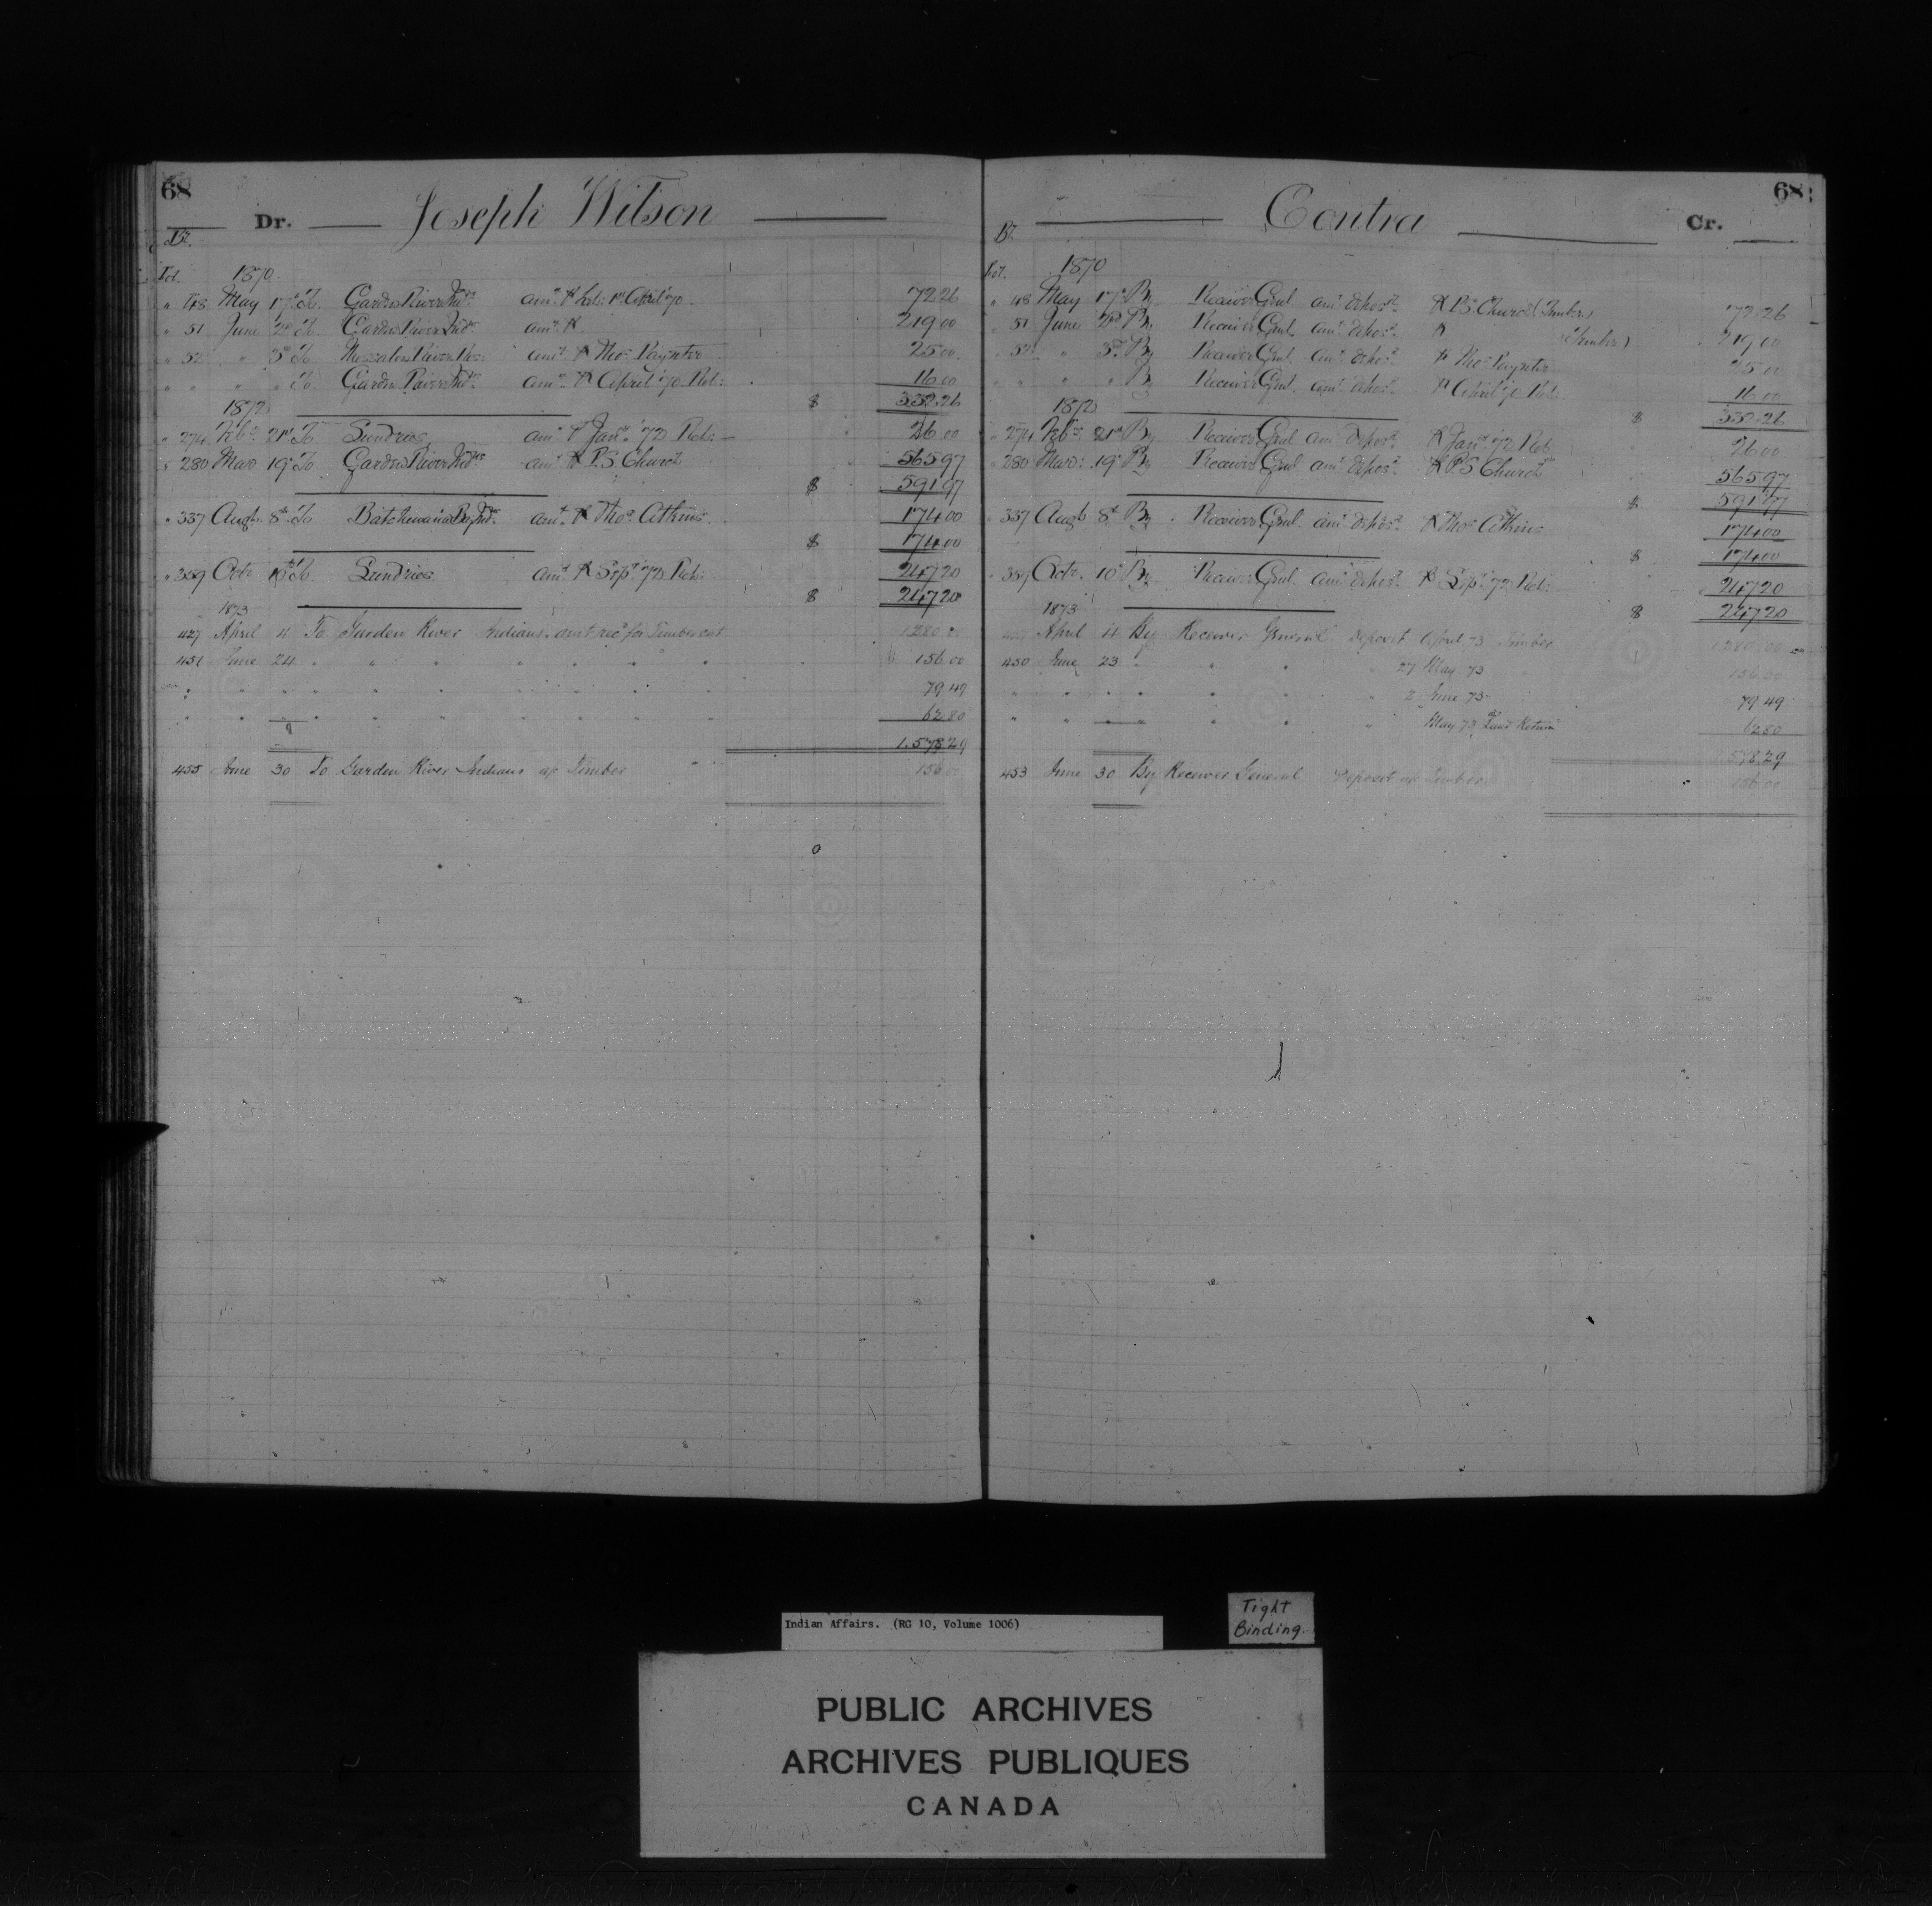 68
Dr. Joseph Wilson
Fol. 1870
" 48 May 17th To Garden River Inds amt ⅌ 1st April '70 72.26
" 51 June 2nd To Garden River Indns amt ⅌ 219 00
" 52 " 3rd To River Res: amt ⅌ Thos Paynter 25 00
" " " " To Garden River Indns amt ⅌ April '70 Ret: 16 00
$ 332.26
1872
" 274 Feby 21st To Sundries amt ⅌ Jany '72 Ret: 26 00
" 280 Mar 19th To Garden River Indns amt ⅌ P.S. Church 565 97
$ 591 97
" 337 Augt 8th To Batchewana Bay Inds amt ⅌ Thos Atkins 174 00
$ 174 00
" 359 Octr 10th To Sundries amt ⅌ Sept '72 Ret: 247 20
$ 247 20
1873
427 April 4 To Garden River Indians amt recd for Timber cut 1280 00
451 June 24 " " " " " " " 156 00
" " " " " " " " " " 79.49
" " " " " " " " " " 62.80
1.578.29
455 June 30 To Garden River Indians a/c Timber 156.00
68
Contra Cr.
Fol. 1870
" 48 May 17th By Receiver Genl amt deposd ⅌ P.S. Church (Timber) 72.26
" 51 June 2nd By Receiver Genl amt deposd ⅌ (Timber) 219 00
" 52 " 3rd By Receiver Genl amt deposd ⅌ Thos Paynter 25.00
" " " " By Receiver Genl amt deposd ⅌ April '70 Ret: 16 00
$ 332.26
1872
" 274 Feby 21st By Receiver Genl amt deposd ⅌ Jany '72 Ret 26 00
" 280 Mar: 19th By Receiver Genl amt deposd ⅌ P.S Church 565 97
$ 591 97
" 337 Augt 8th By Receiver Genl amt deposd ⅌ Thos Atkins 174 00
$ 174 00
" 359 Octr. 10th By Receiver Genl amt deposd ⅌ Sept '72 Ret: 247 20
$ 247 20
1873
427 April 4 By Receiver General Deposit April 73 Timber 1280.00
450 June 23 " " " " 27 May 73 156.00
" " " " " " " 2 June 73 79.49
" " " " " " May 73 Land Return 62.80
1.578.29
453 June 30 By Receiver General Deposit a/c Timber 156.00
Indian Affairs. (RG 10, Volume 1006)
Tight
Binding.
PUBLIC ARCHIVES
ARCHIVES PUBLIQUES
CANADA